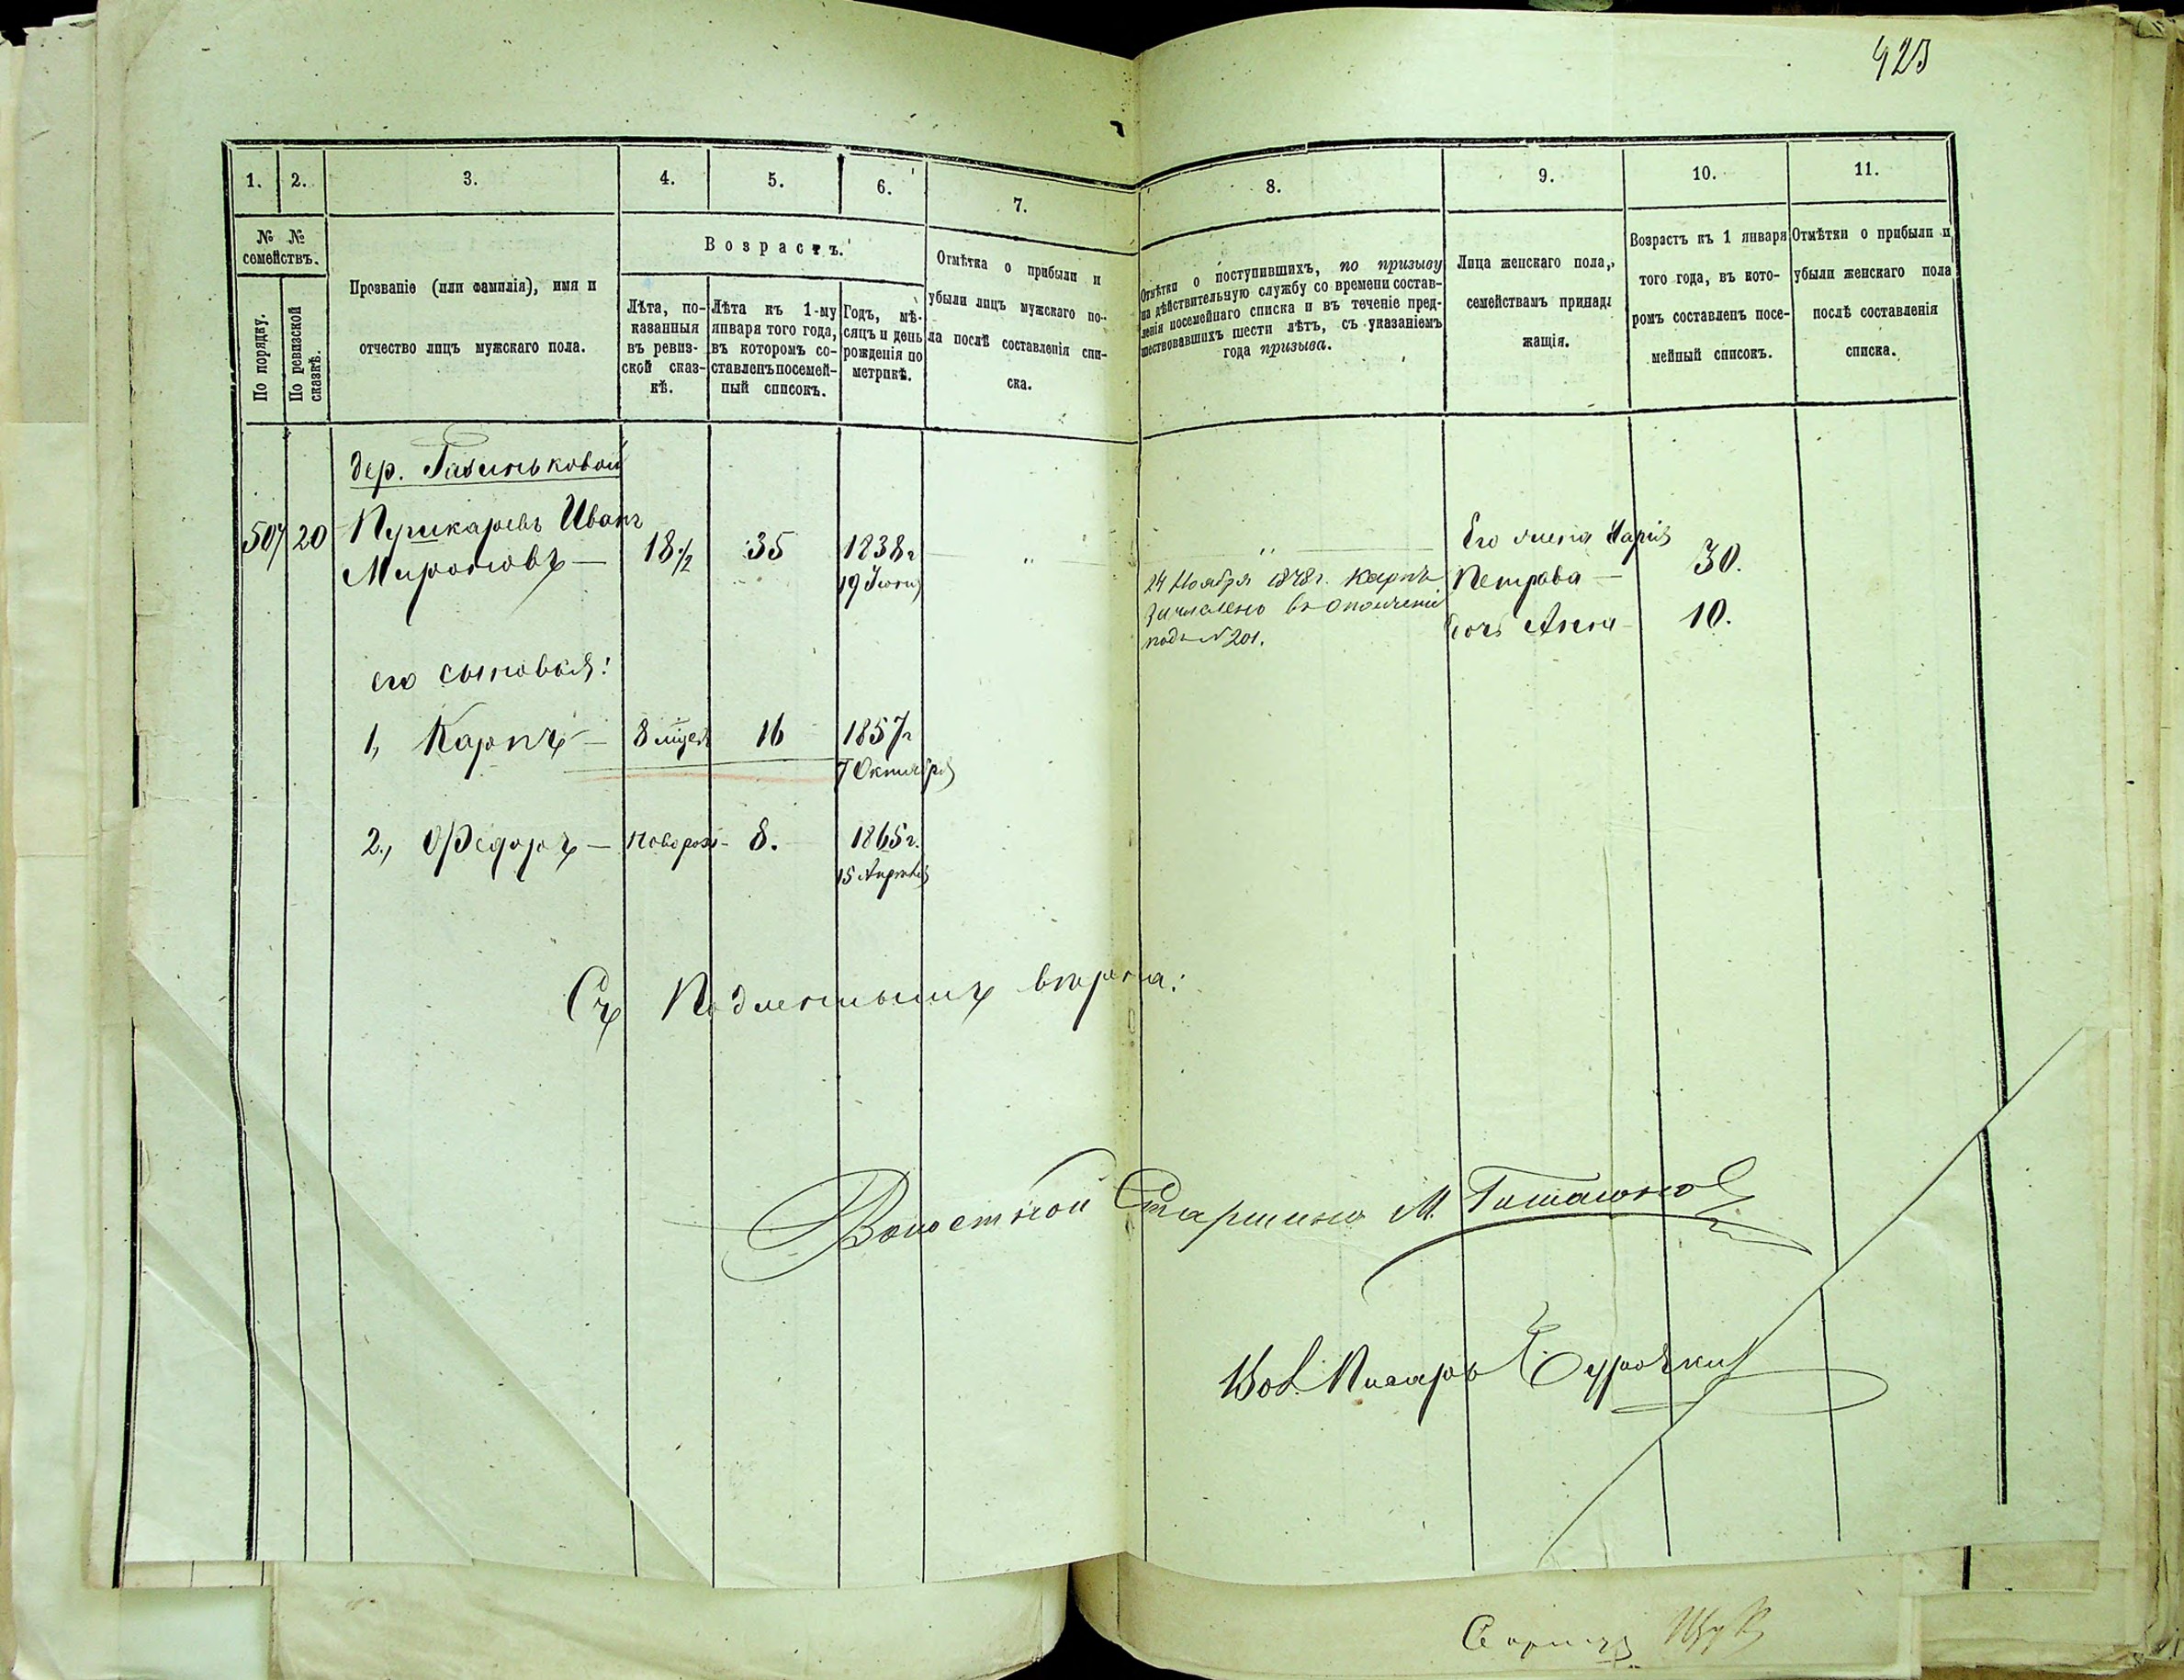 423
1.
2.
3.
4.
5.
6.
7.
8.
9.
10.
11.
№ №
семействъ.
По порядку.
По ревизской
сказкѣ.
Прозваніе (или фамилія), имя и
отчество лицъ мужскаго пола.
Возрастъ.
Лѣта, по-
казанныя
въ ревиз-
ской сказ-
кѣ.
Лѣта къ 1-му
января того года,
въ которомъ со-
ставленъ посемей-
ный списокъ.
Годъ, мѣ-
сяцъ и день
рожденія по
метрикѣ.
Отмѣтка о прибыли и
убыли лицъ мужскаго по-
ла послѣ составленія спи-
ска.
Отмѣтки о поступившихъ, по призыву
на дѣйствительную службу со времени состав-
ленія посемейнаго списка и въ теченіе пред-
шествовавшихъ шести лѣтъ, съ указаніемъ
года призыва.
Лица женскаго пола,
семействамъ принадл
жащія.
Возрастъ къ 1 января
того года, въ кото-
ромъ составленъ посе-
мейный списокъ.
Отмѣтки о прибыли и
убыли женскаго пола
послѣ составленія
списка.
дер.
507 20 Пушкаревъ Иванъ
Мироновъ — 18½ 35 1838 г
19 Іюня
24 Ноября 1878 г. Карпъ
зачислено въ ополченіе
подъ № 201.
Его жена Марія
Петрова — 30.
дочь Анна — 10.
его сыновья:
1, Карпъ — 8 мѣсец 16 1857 г
7 Октября
2., Федоръ — новорож- 8. 1865 г.
15 Апрѣля
Съ Подлиннымъ вѣрна:
Волостной Старшина М.
Вол. Писарь